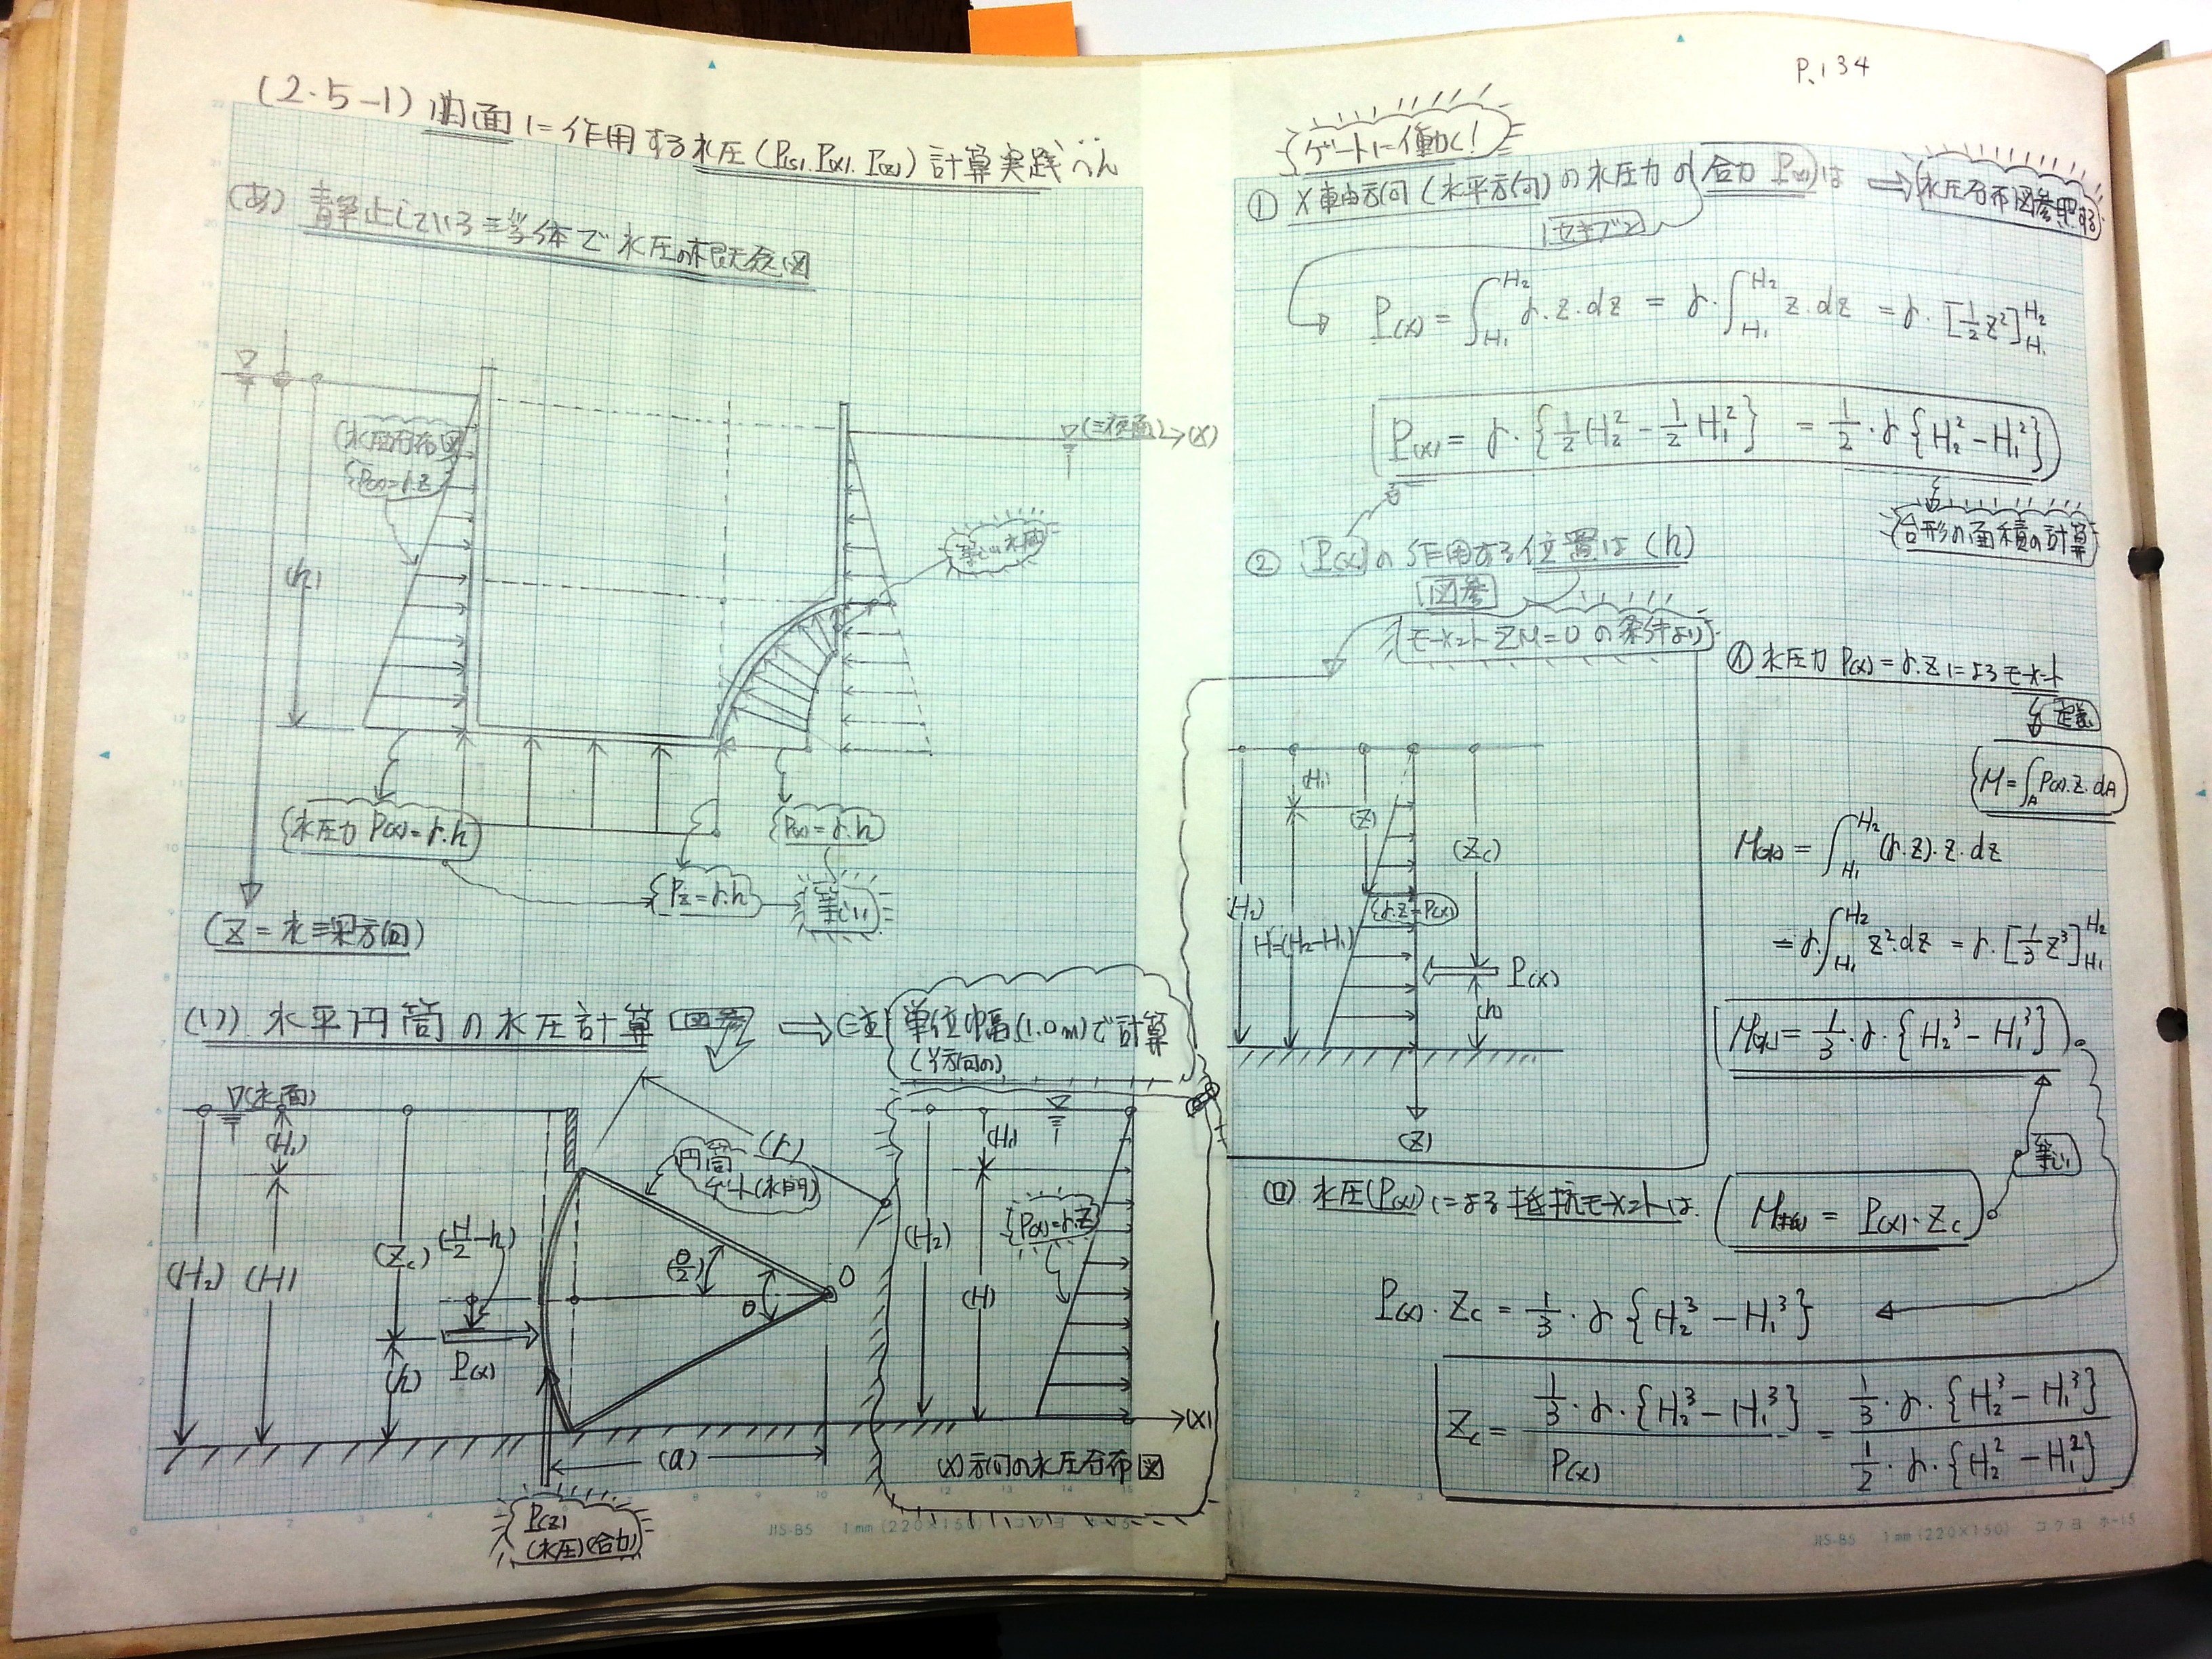 (2.5-1) 曲面に作用する水圧(P(s).P(x).P(z))計算実践へん
(あ) 静止している液体で水圧の概念図
(水圧分布図
P(x)=γ.z
(h)
(液面)→(X)
等しい水圧
{水圧力 P(x)=γ.h}
{P(x)=γ.h}
{Pz=γ.h}
等しい
(Z=水深方向)
(い) 水平円筒の水圧計算 図参 ⇒ 注 単位幅(1.0m)で計算
(Y方向の)
▽(水面)
(H1)
(H2)
(H)
(Zc)
(H/2-h)
P(x)
(h)
(r)
円筒
ゲート(水門)
(θ/2)
θ
O
(a)
P(z)
(水圧)(合力)
(H1)
(H2)
(H)
{P(x)=γ.z}
(X)
(X)方向の水圧分布図
JIS-B5 1mm(220×150) コクヨ ホ-15
P.134
ゲートに働く!
① X軸方向(水平方向)の水圧力の合力 P(x)は ⇒ 水圧分布図参照する
セキブン
P(x) = ∫H1H2 γ.z.dz = γ.∫H1H2 z.dz = γ.[1/2 z²]H1H2
P(x) = γ.{1/2 H2² - 1/2 H1²} = 1/2.γ{H2²-H1²}
台形の面積の計算
② P(x)の作用する位置は(h)
図参
モーメント ΣM=0 の条件より
(H1)
(Z)
(Zc)
{γ.z=P(x)}
(H2)
H=(H2-H1)
P(x)
(h)
(Z)
(イ) 水圧力 P(x)=γ.z によるモーメント
定義
{M=∫A P(x).z.dA}
M(x) = ∫H1H2 (γ.z).z.dz
= γ.∫H1H2 z².dz = γ.[1/3 z³]H1H2
M(x) = 1/3.γ.{H2³-H1³}
等しい
(ロ) 水圧(P(x))による抵抗モーメントは. M = P(x).Zc
P(x).Zc = 1/3.γ{H2³-H1³}
Zc = 1/3.γ.{H2³-H1³} / P(x) = 1/3.γ.{H2³-H1³} / 1/2.γ.{H2²-H1²}
JIS-B5 1mm(220×150) コクヨ ホ-15